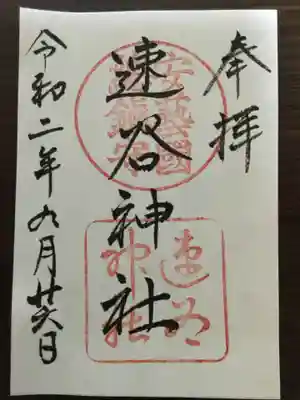 奉拝
安藝國
總鎮守
速谷神社
速谷
神社
令和二年九月廿六日